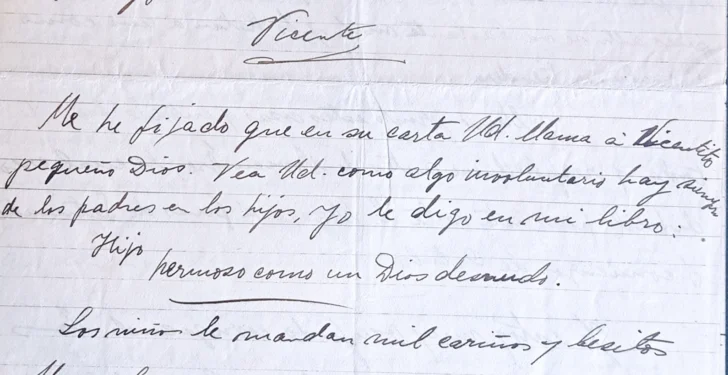 Vicente
Me he fijado que en su carta Ud. llama á Vicentito
pequeño Dios. Vea Ud. como algo involuntario hay siempre
de los padres en los hijos, yo le digo en mi libro:
Hijo
hermoso como un Dios desnudo.
Los niños le mandan mil cariños y besitos